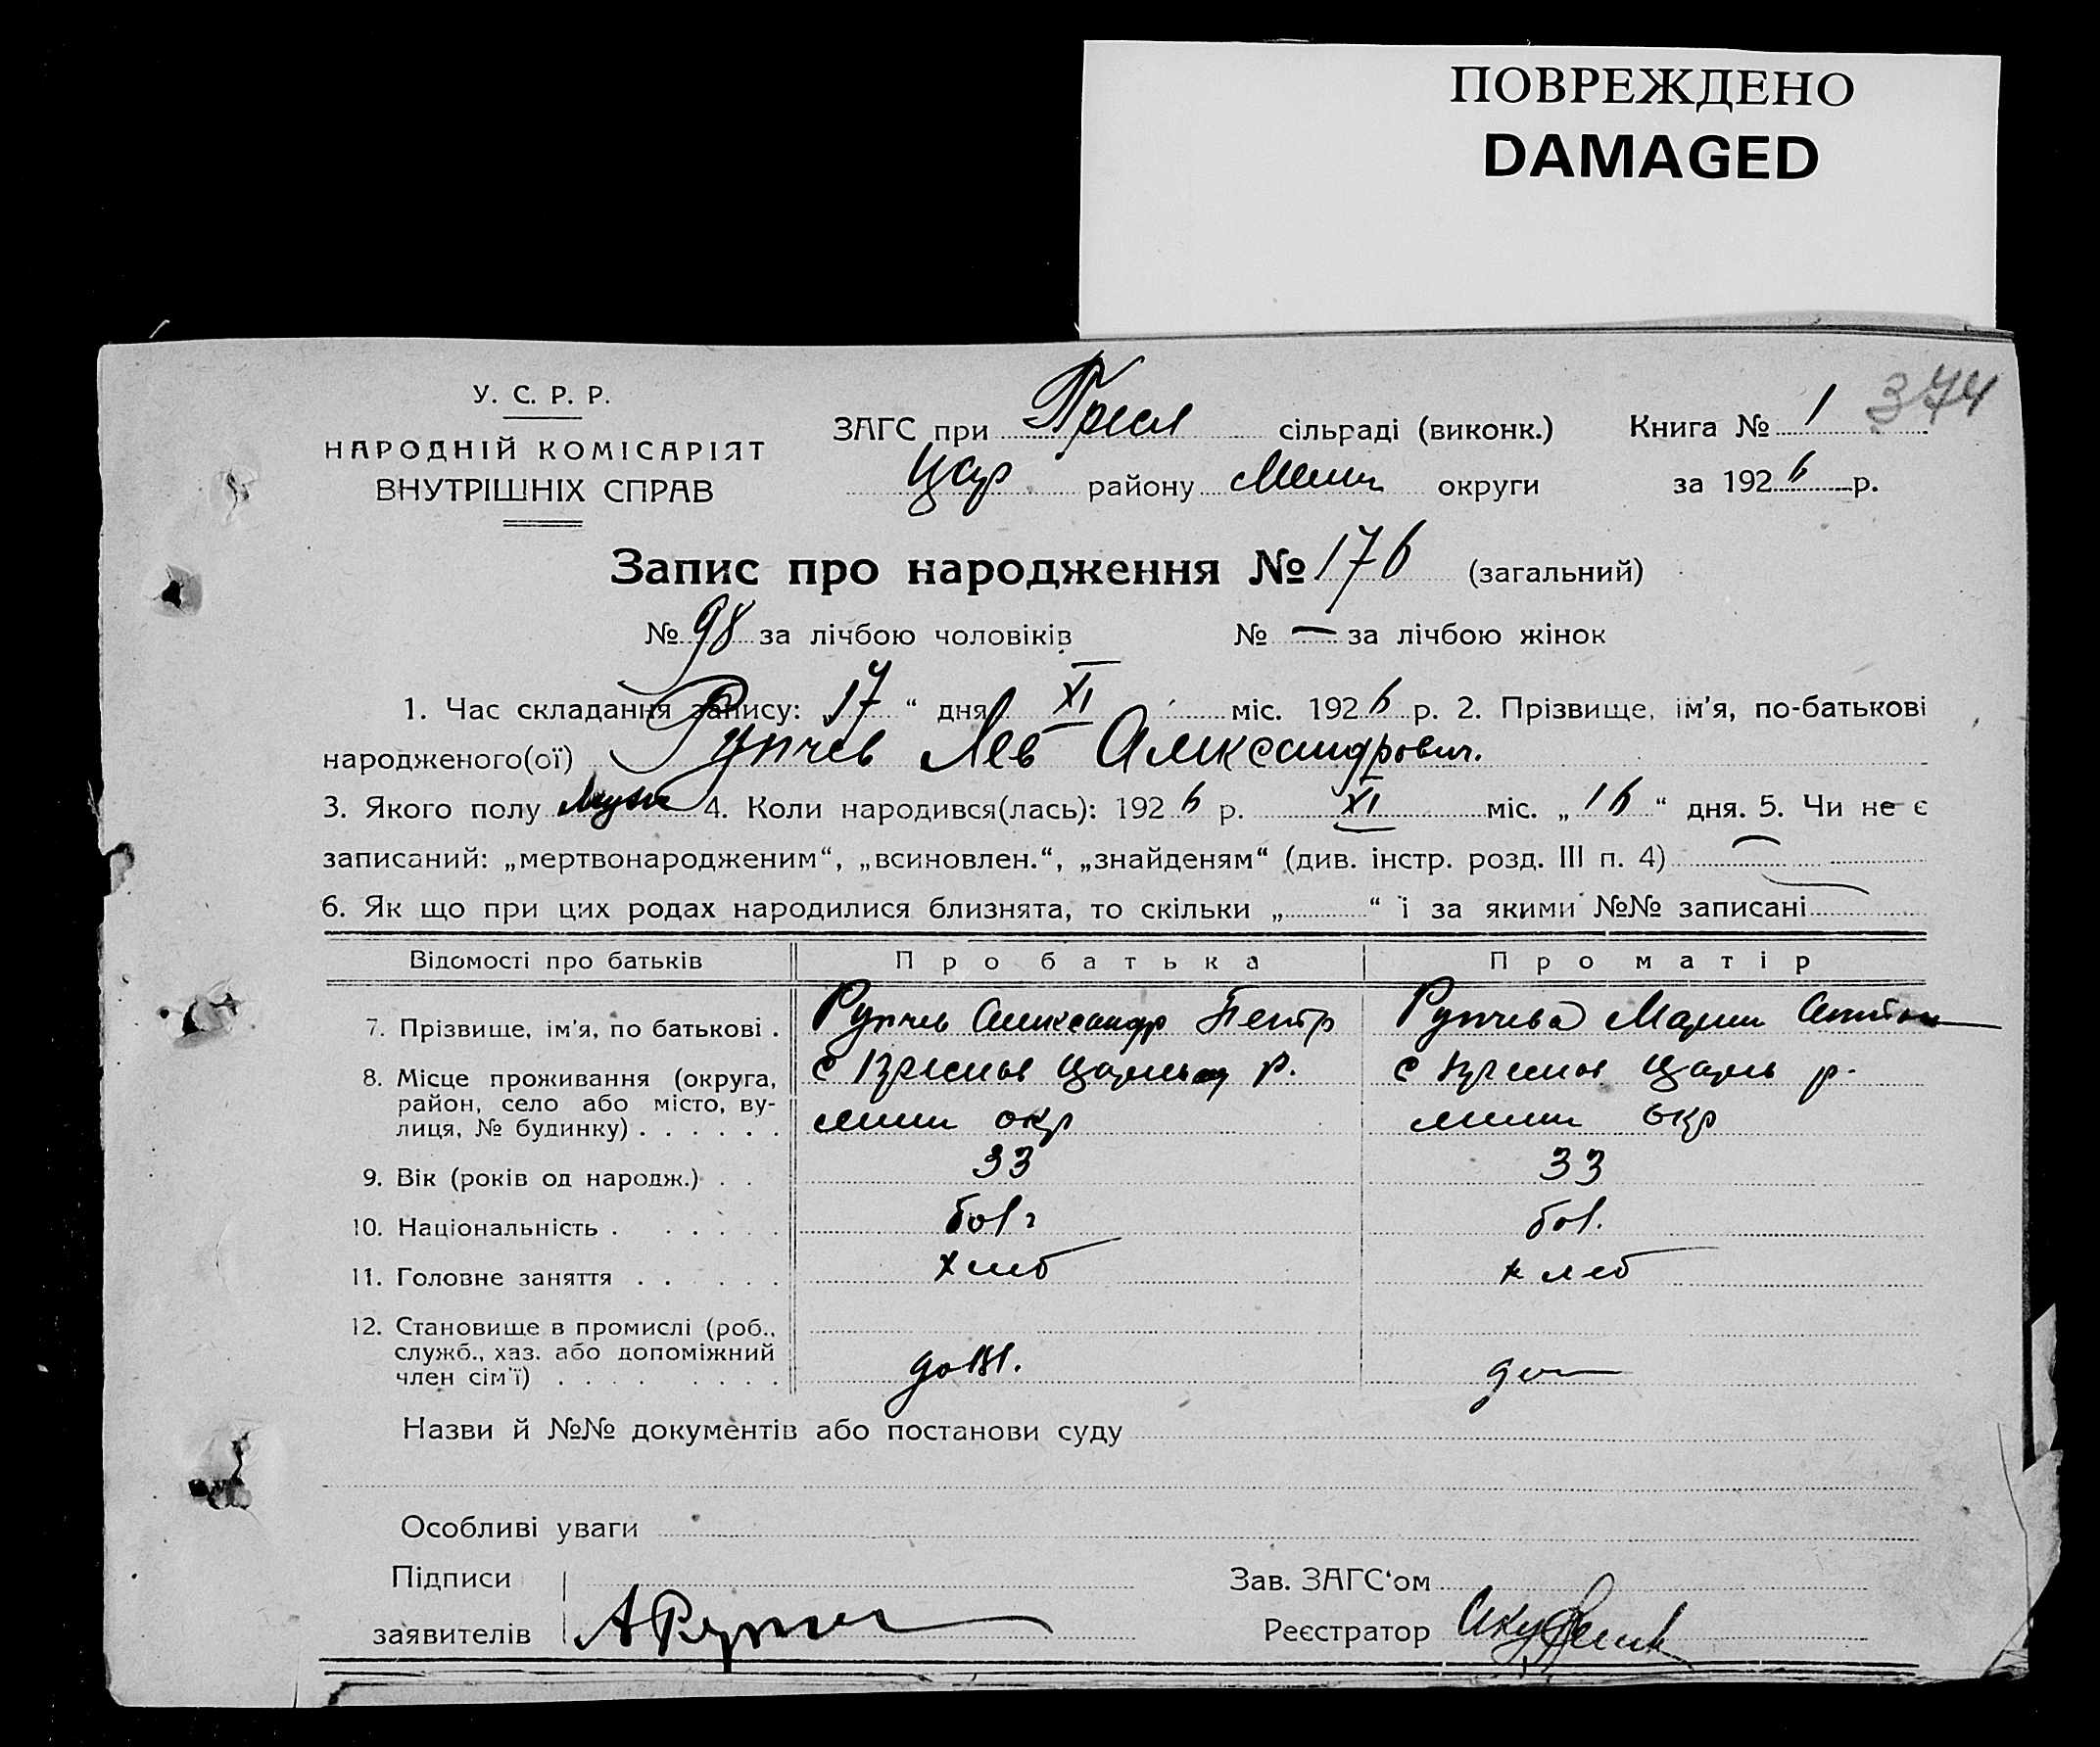 ПОВРЕЖДЕНО
DAMAGED
У. С. Р. Р.
НАРОДНІЙ КОМІСАРІЯТ
ВНУТРІШНІХ СПРАВ
ЗАГС при Пресл сільраді (виконк.) Книга № 1 374
Цар району Мели округи за 1926 р.
Запис про народження № 176 (загальний)
№ 98 за лічбою чоловіків № — за лічбою жінок
1. Час складання запису: 17 “ дня XI міс. 1926 р. 2. Прізвище, ім'я, по-батькові
народженого(ої) Рупчев Лев Александрович.
3. Якого полу муж 4. Коли народився(лась): 1926 р. XI міс. „ 16 “ дня. 5. Чи не є
записаний: „мертвонародженим“, „всиновлен.“, „знайденям“ (див. інстр. розд. III п. 4) —
6. Як що при цих родах народилися близнята, то скільки „ “ і за якими №№ записані
Відомості про батьків Про батька Про матір
7. Прізвище, ім'я, по батькові . Рупчев Александр Петр Рупчева Мария Антон
8. Місце проживання (округа, с р. с р.
район, село або місто, ву-
лиця, № будинку) . . . . . . окр окр
9. Вік (років од народж.) . . 33 33
10. Національність . . . . . . болг бол.
11. Головне заняття . . . . . хлеб хлеб
12. Становище в промислі (роб.,
служб., хаз. або допоміжний
член сім'ї) . . . . . . . .
Назви й №№ документів або постанови суду
Особливі уваги
Підписи Зав. ЗАГС'ом
заявителів Реєстратор